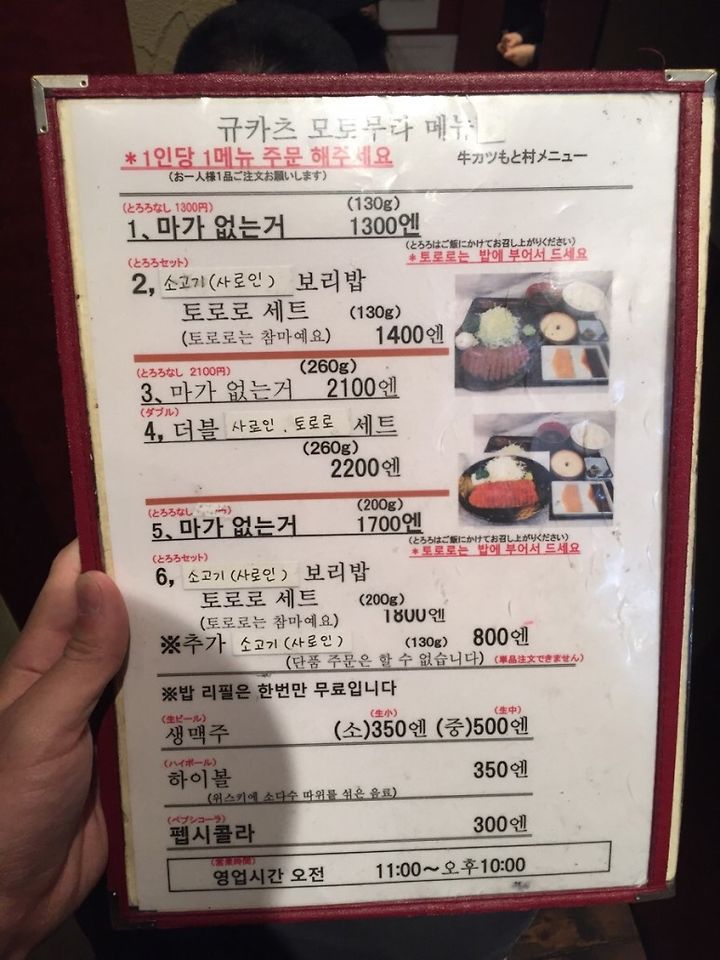 규카츠 모토무라 메뉴
*1인당 1메뉴 주문 해주세요 牛カツもと村メニュー
(お一人様1品ご注文お願いします)
(とろろなし 1300円) (130g)
1、마가 없는거 1300엔
(とろろはご飯にかけてお召し上がりください)
*토로로는 밥에 부어서 드세요
(とろろセット)
2, 소고기(사로인) 보리밥
토로로 세트 (130g)
(토로로는 참마예요) 1400엔
(とろろなし 2100円) (260g)
3、마가 없는거 2100엔
(ダブル)
4, 더블 사로인.토로로 세트
(260g)
2200엔
(とろろなし (200g)
5、마가 없는거 1700엔
(とろろはご飯にかけてお召し上がりください)
*토로로는 밥에 부어서 드세요
(とろろセット)
6, 소고기(사로인) 보리밥
토로로 세트 (200g)
(토로로는 참마예요) 1800엔
※추가 소고기(사로인) (130g) 800엔
(단품 주문은 할 수 없습니다) (単品注文できません)
※밥 리필은 한번만 무료입니다
(生ビール) (生小) (生中)
생맥주 (소)350엔 (중)500엔
(ハイボール)
하이볼 350엔
(위스키에 소다수 따위를 섞은 음료)
(ペプシコーラ)
펩시콜라 300엔
(営業時間)
영업시간 오전 11:00~오후10:00